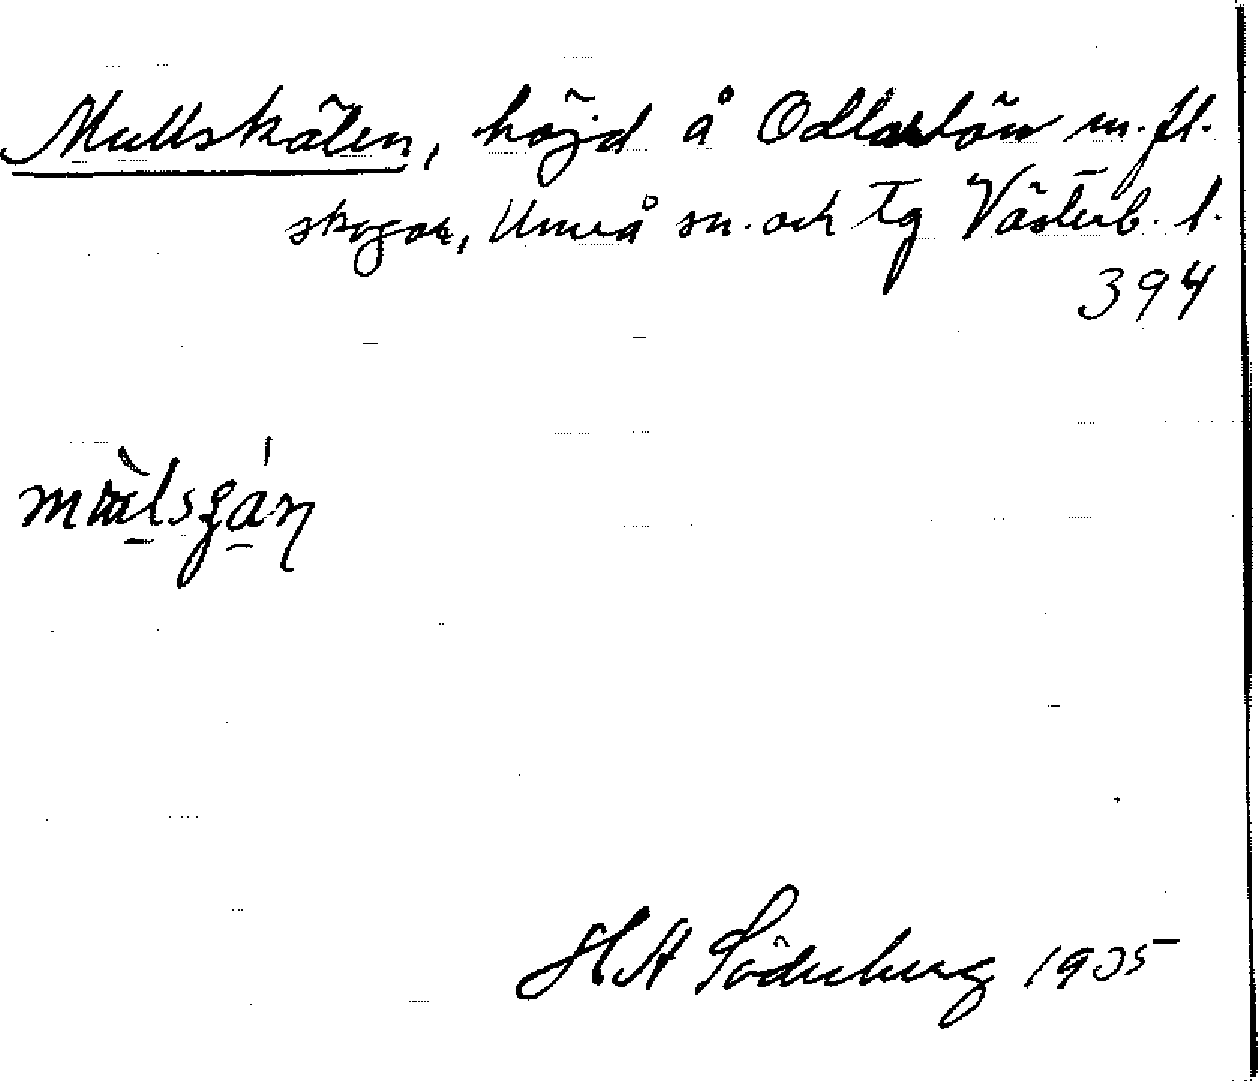 Mullskälen, höjd å Odlarbön m.fl.
skogar, Umeå sn. och tg Västerb. l.
394
H A Söderberg 1935